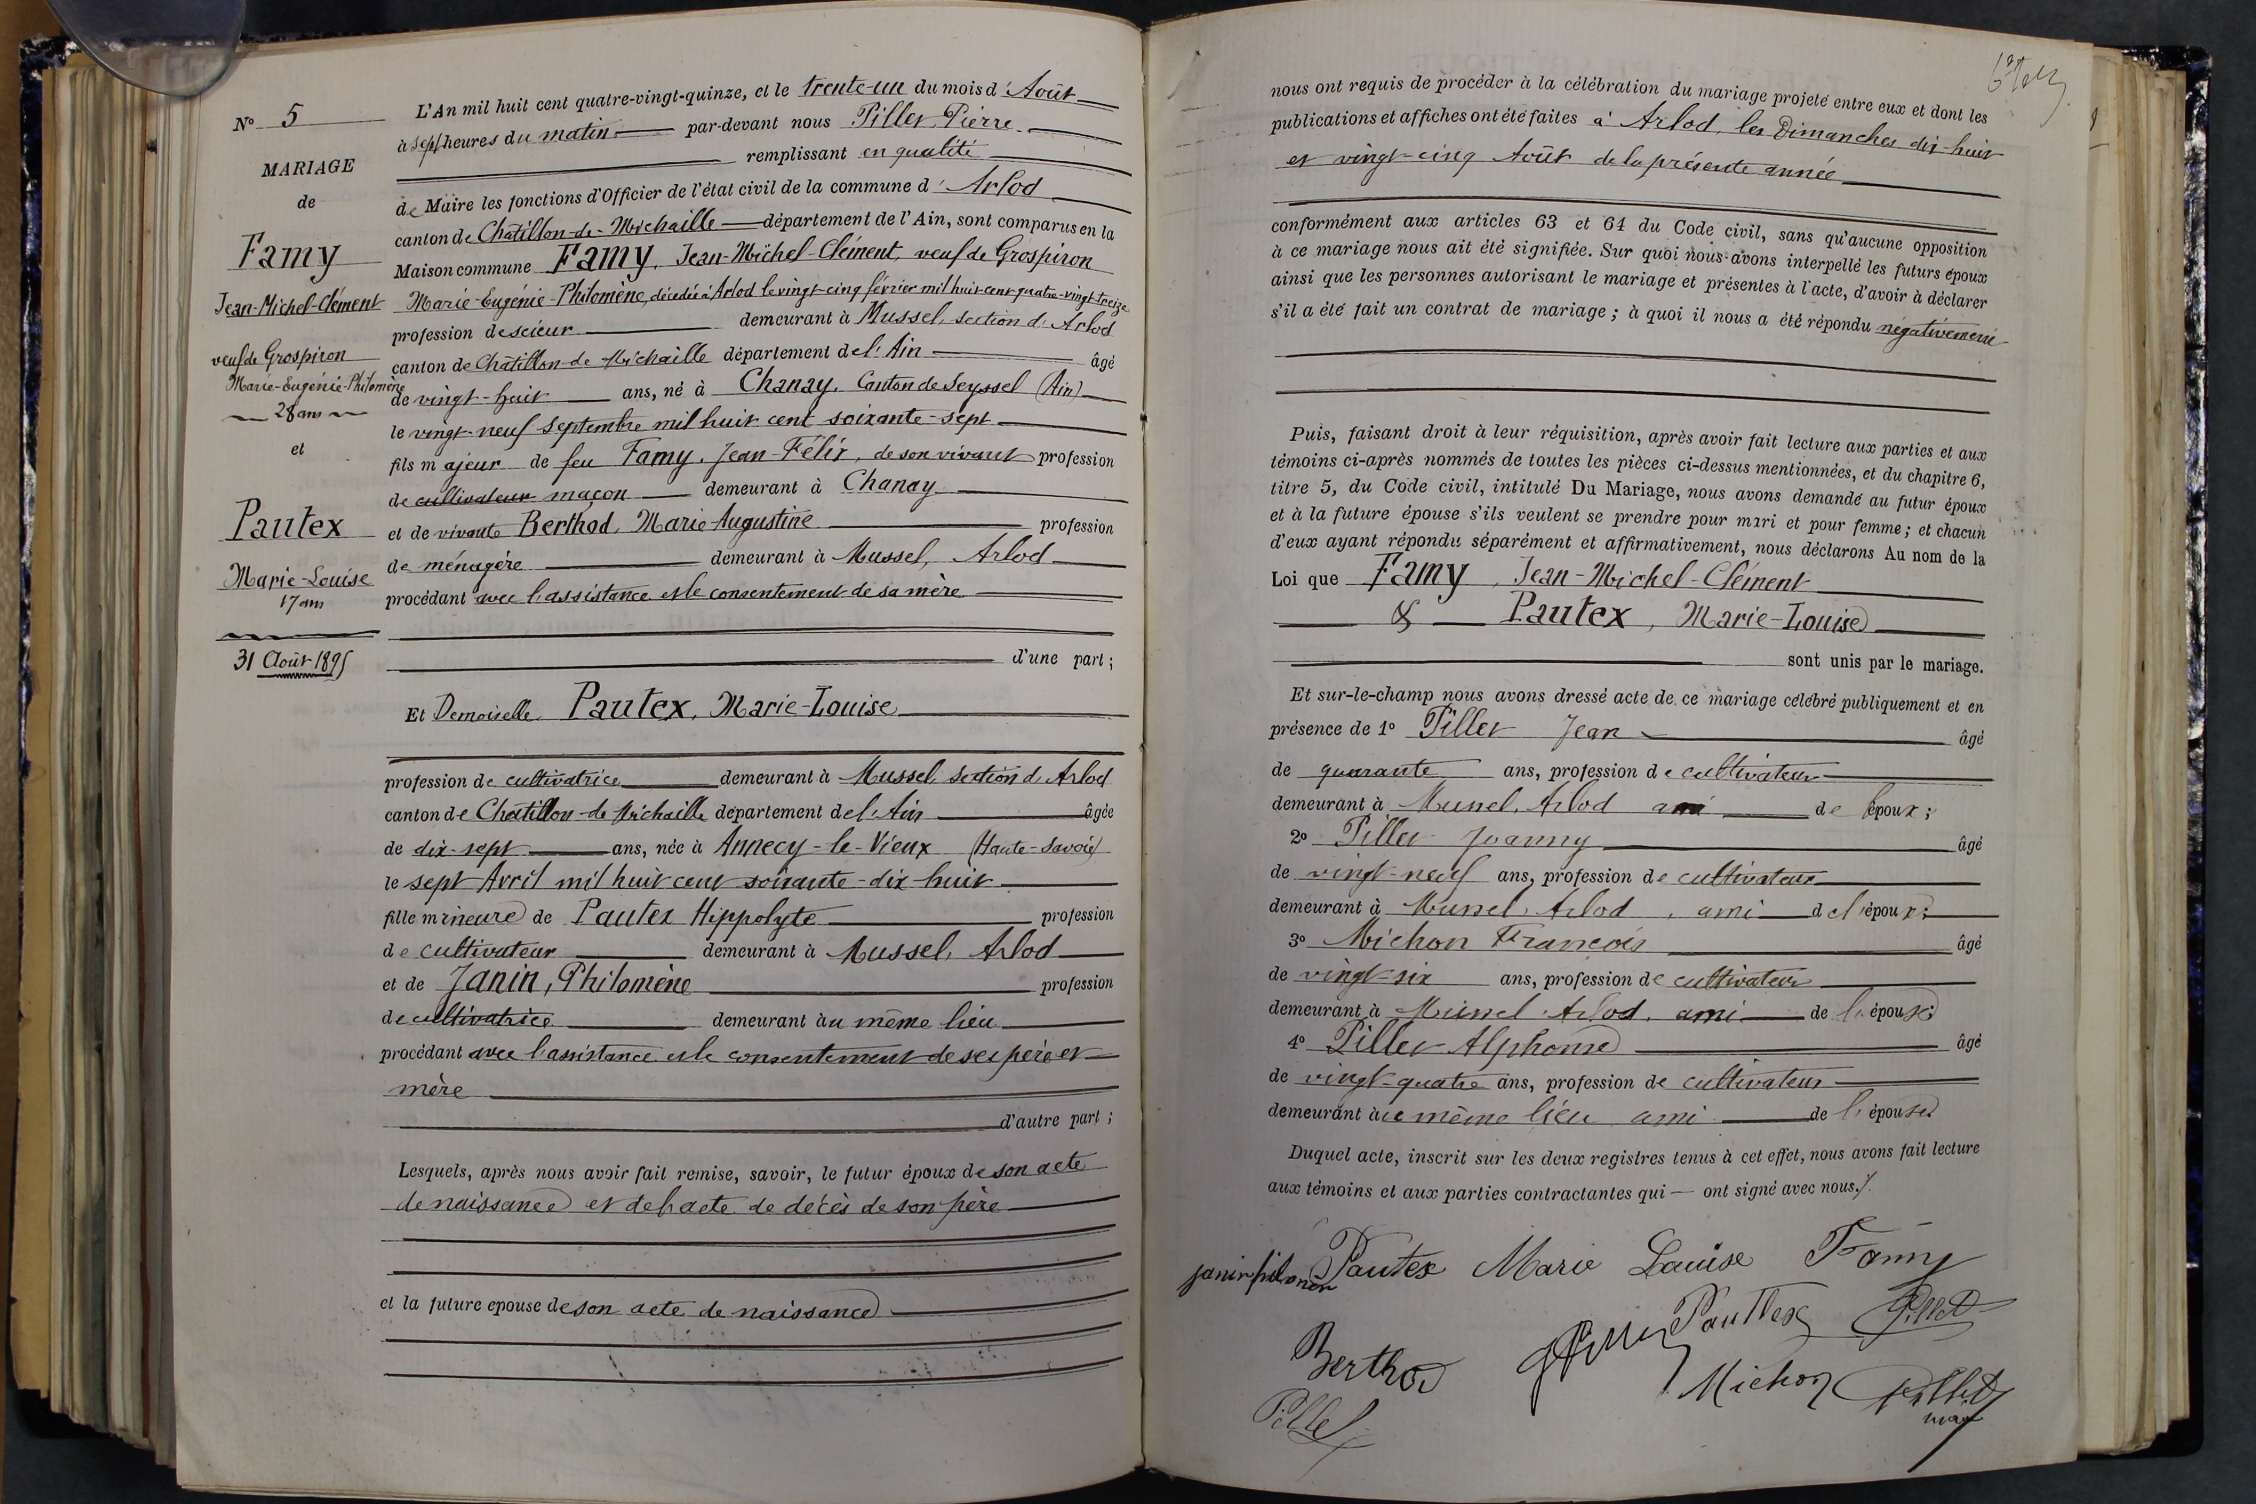 N° 5
MARIAGE
de
Famy
Jean-Michel-Clément
veuf de Grospiron
Marie-Eugénie-Philomène
28 ans
et
Pautex
Marie-Louise
17 ans
31 Août 1895
L'An mil huit cent quatre-vingt-quinze, et le trente-un du mois d'Août
à sept heures du matin par-devant nous Pillet, Pierre
remplissant en qualité
de Maire les fonctions d'Officier de l'état civil de la commune d'Arlod
canton de Chatillon-de-Michaille département de l'Ain, sont comparus en la
Maison commune Famy, Jean-Michel-Clément, veuf de Grospiron
Marie-Eugénie-Philomène, décédée à Arlod le vingt-cinq février mil huit cent quatre-vingt-treize
profession de scieur demeurant à Mussel, section d'Arlod
canton de Châtillon-de-Michaille département de l'Ain âgé
de vingt-huit ans, né à Chanay, Canton de Seyssel (Ain)
le vingt-neuf septembre mil huit cent soixante-sept
fils majeur de feu Famy, Jean-Félix, de son vivant profession
de cultivateur maçon demeurant à Chanay
et de vivante Berthod, Marie Augustine profession
de ménagère demeurant à Mussel, Arlod
procédant avec l'assistance et le consentement de sa mère
d'une part;
Et Demoiselle Pautex, Marie-Louise
profession de cultivatrice demeurant à Mussel, section d'Arlod
canton de Chatillon-de-Michaille département de l'Ain âgée
de dix-sept ans, née à Annecy-le-Vieux (Haute-Savoie)
le sept Avril mil huit cent soixante-dix-huit
fille mineure de Pautex Hippolyte profession
de cultivateur demeurant à Mussel, Arlod
et de Janin, Philomène profession
de cultivatrice demeurant au même lieu
procédant avec l'assistance et le consentement de ses père et
mère
d'autre part;
Lesquels, après nous avoir fait remise, savoir, le futur époux de son acte
de naissance et de l'acte de décès de son père
et la future epouse de son acte de naissance
nous ont requis de procéder à la célébration du mariage projeté entre eux et dont les
publications et affiches ont été faites à Arlod, les Dimanches dix-huit
et vingt-cinq Août de la présente année
conformément aux articles 63 et 64 du Code civil, sans qu'aucune opposition
à ce mariage nous ait été signifiée. Sur quoi nous avons interpellé les futurs époux
ainsi que les personnes autorisant le mariage et présentes à l'acte, d'avoir à déclarer
s'il a été fait un contrat de mariage; à quoi il nous a été répondu négativement
Puis, faisant droit à leur réquisition, après avoir fait lecture aux parties et aux
témoins ci-après nommés de toutes les pièces ci-dessus mentionnées, et du chapitre 6,
titre 5, du Code civil, intitulé Du Mariage, nous avons demandé au futur époux
et à la future épouse s'ils veulent se prendre pour mari et pour femme; et chacun
d'eux ayant répondu séparément et affirmativement, nous déclarons Au nom de la
Loi que Famy, Jean-Michel-Clément
& Pautex, Marie-Louise
sont unis par le mariage.
Et sur-le-champ nous avons dressé acte de ce mariage célébré publiquement et en
présence de 1° Pillet Jean âgé
de quarante ans, profession de cultivateur
demeurant à Mussel, Arlod ami de l'époux;
2° Pillet Joanny âgé
de vingt-neuf ans, profession de cultivateur
demeurant à Mussel, Arlod, ami de l'époux;
3° Michon François âgé
de vingt-six ans, profession de cultivateur
demeurant à Mussel Arlod, ami de l'épouse
4° Pillet Alphonse âgé
de vingt-quatre ans, profession de cultivateur
demeurant au même lieu ami de l'épouse
Duquel acte, inscrit sur les deux registres tenus à cet effet, nous avons fait lecture
aux témoins et aux parties contractantes qui — ont signé avec nous.
Pautex Marie Louise Famy
janin filomen
Pauttex Pillet
Berthod
Michon Pillet
Pillet
maire